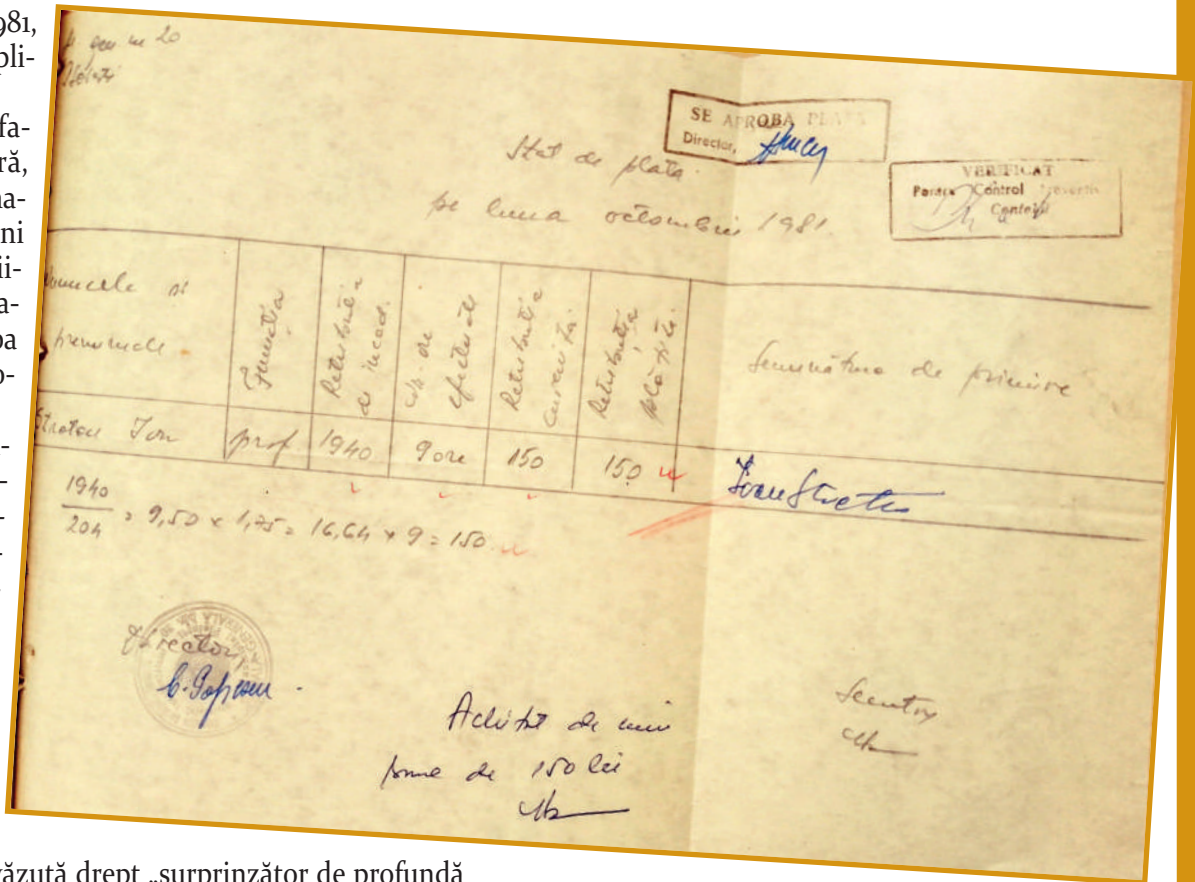 981,
pli-
fa-
ră,
na-
ni
ii-
a-
pa
o-
gen nr 20
SE APROBĂ PLATA
Director,
VERIFICAT
Control Preventiv
Contabil
Stat de plata
pe luna octombrie 1981.
Numele si prenumele
Functia
Retributia de incad.
Nr. ore efectuate
Retributia cuvenita
Retributia plătită
Semnătura de primire
Stratan Ion
prof
1940
9 ore
150
150
Ioan Stratan
1940
204 = 9,50 x 1,75 = 16,64 x 9 = 150
Director
C. Popescu
Secretar
Achitat de mine
suma de 150 lei
văzută drept „surprinzător de profundă